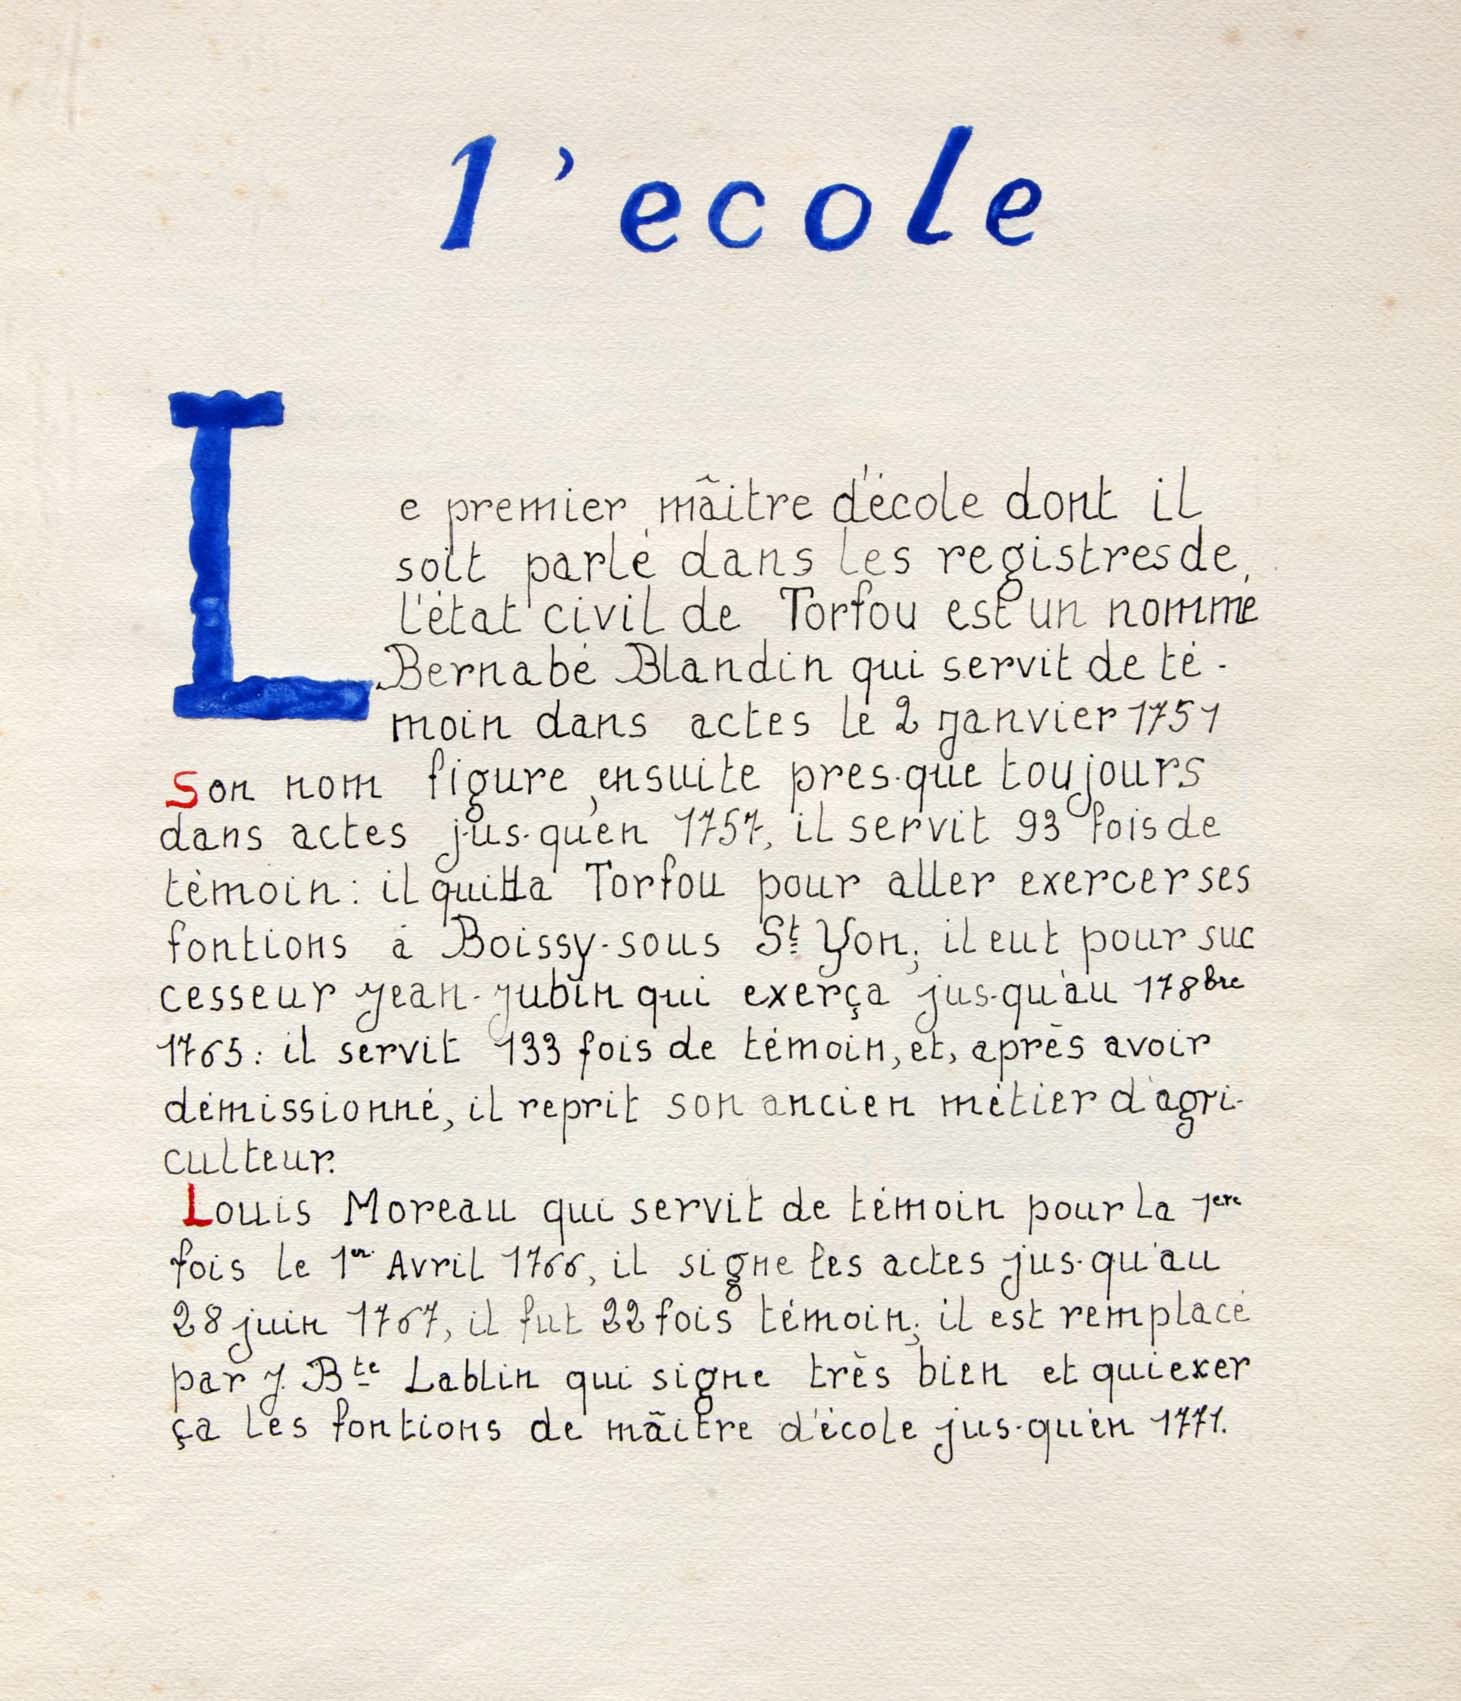 l'ecole
Le premier mâitre d'école dont il
soit parlé dans les registres de
l'état civil de Torfou est un nommé
Bernabé Blandin qui servit de té-
moin dans actes le 2 Janvier 1751
Son nom figure ensuite pres-que toujours
dans actes jus-qu'en 1757, il servit 93 fois de
témoin : il quitta Torfou pour aller exercer ses
fontions à Boissy-sous St Yon; il eut pour suc
cesseur Jean-Jubin qui exerça jus-qu'au 17 8bre
1765 : il servit 133 fois de témoin, et, après avoir
démissionné, il reprit son ancien métier d'agri-
culteur.
Louis Moreau qui servit de témoin pour la 1ere
fois le 1er Avril 1766, il signe les actes jus-qu'au
28 juin 1767, il fut 22 fois témoin; il est remplacé
par J. Bte Lablin qui signe très bien et qui exer
ça les fontions de mâitre d'école jus-qu'en 1771.